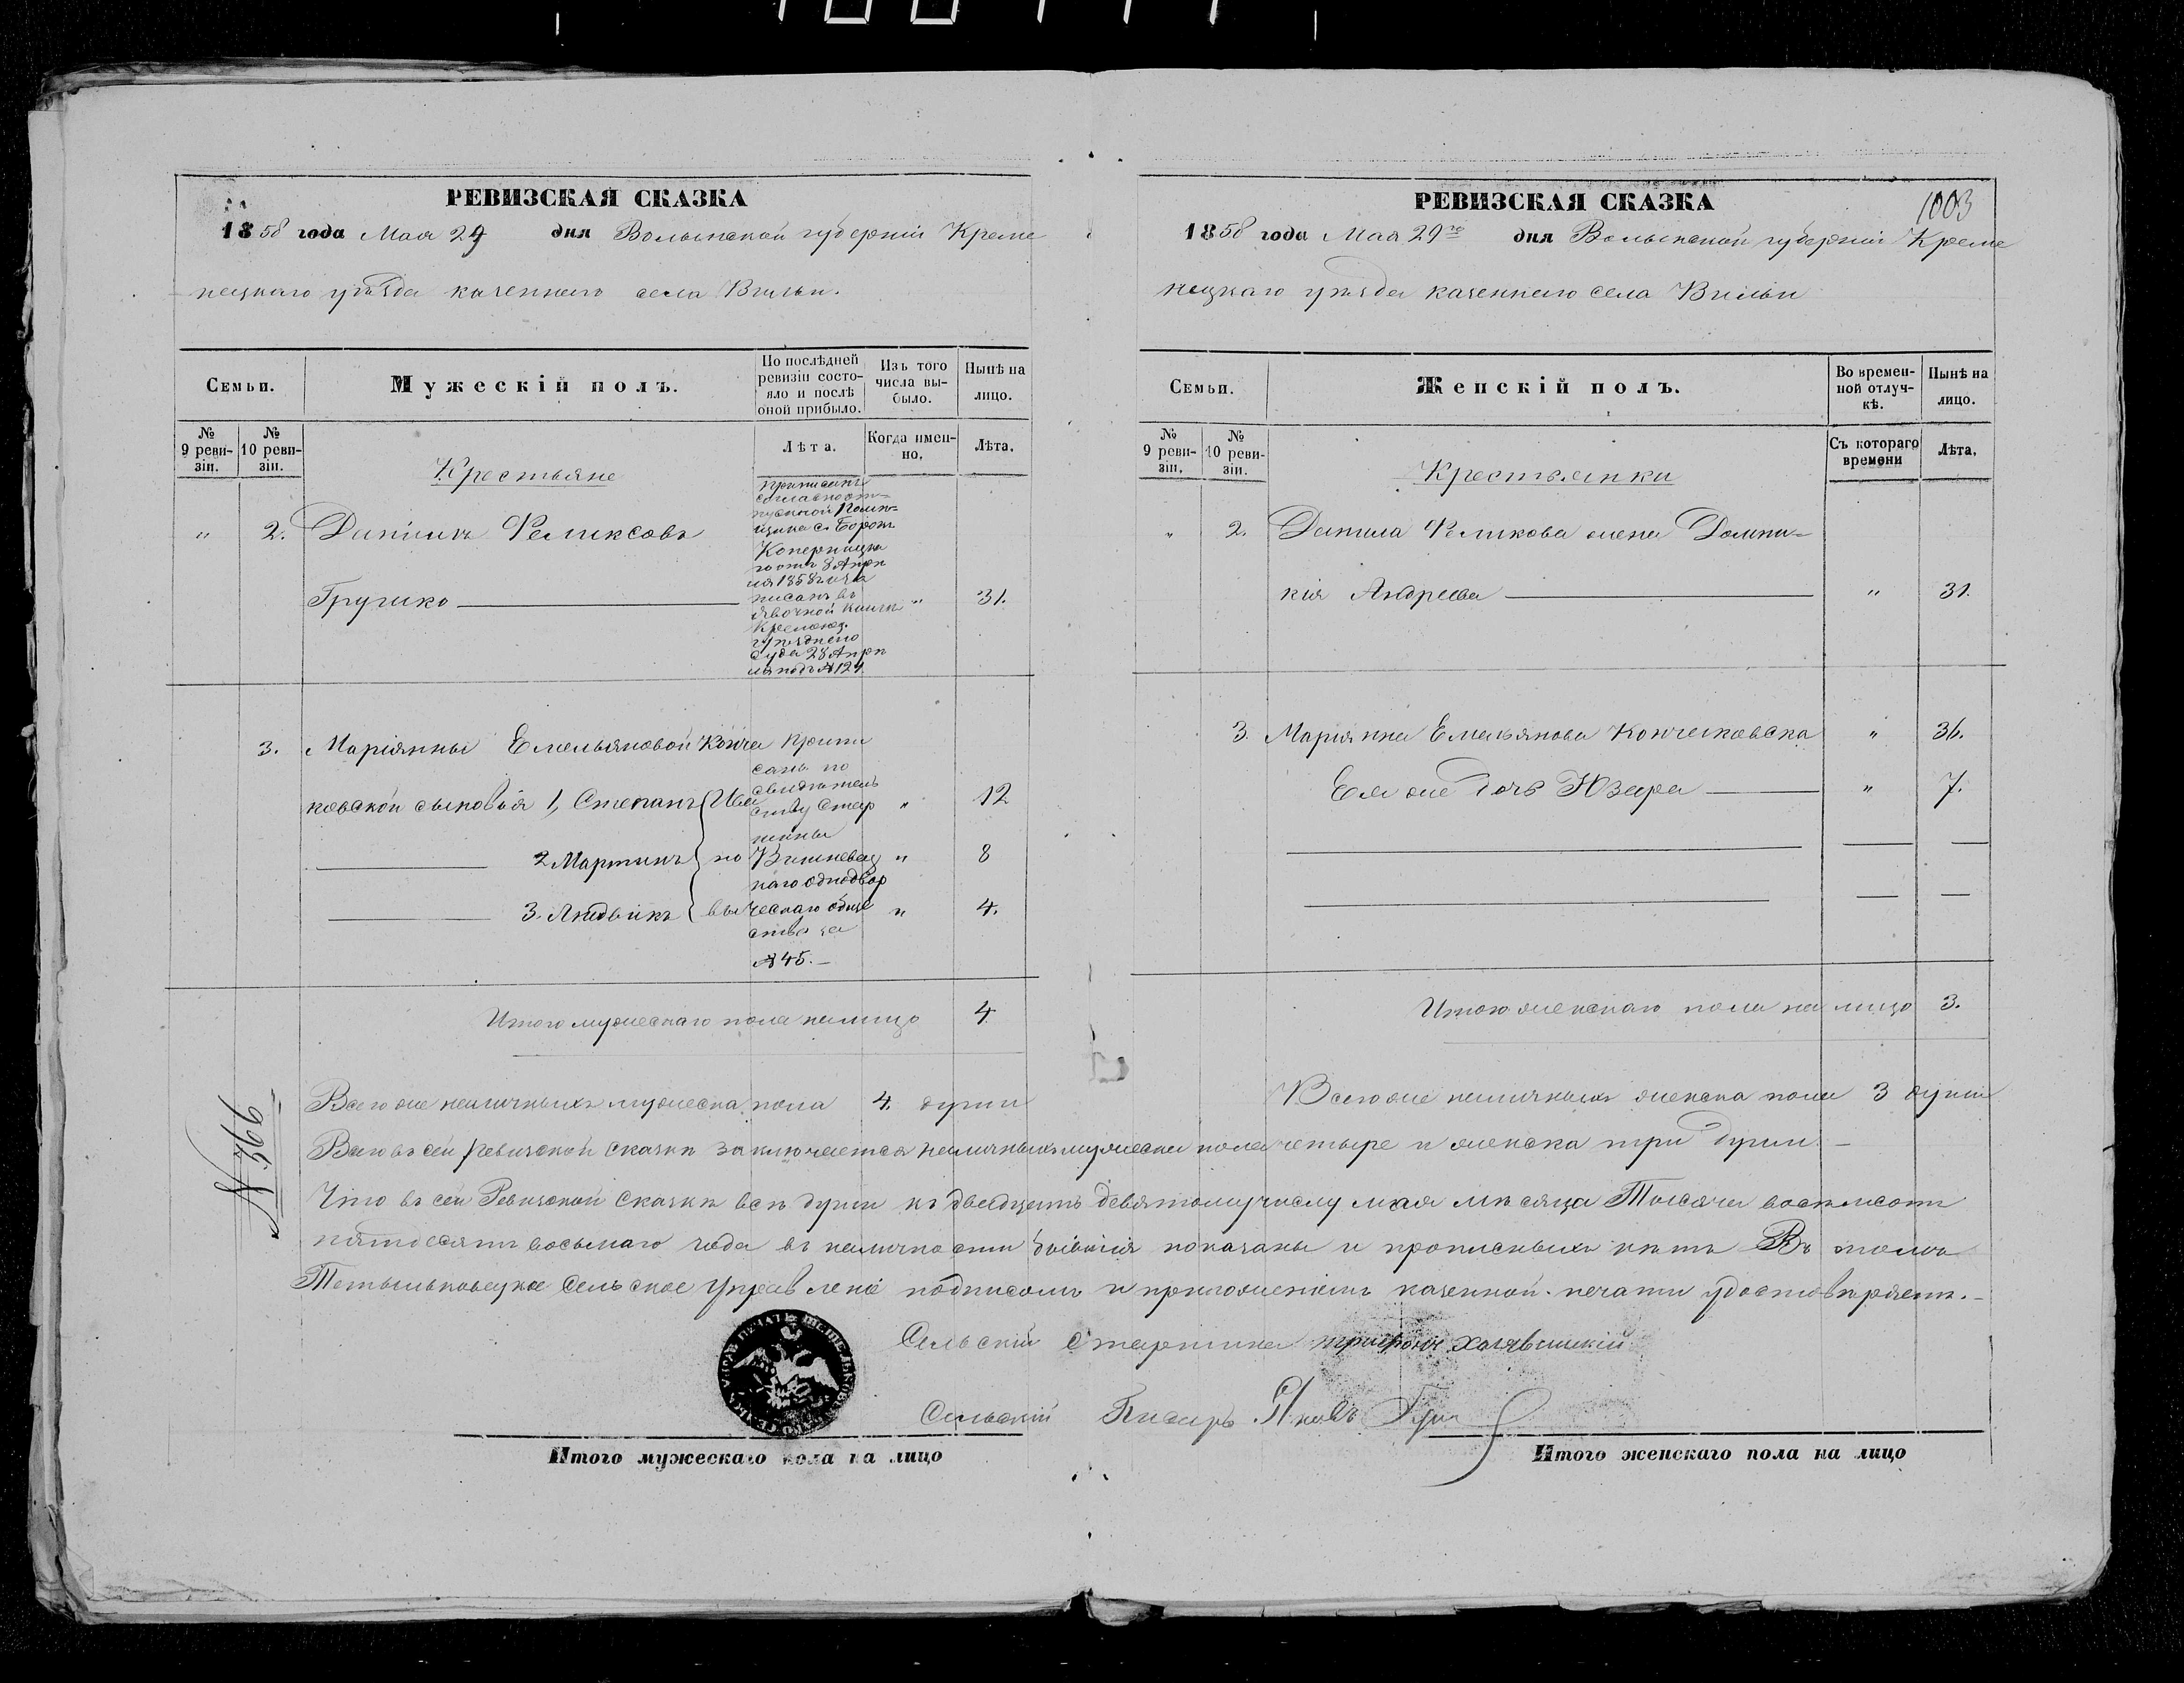 РЕВИЗСКАЯ СКАЗКА
1858 года Мая 29 дня Волынской губерніи Креме
нецкаго уѣзда казеннаго села
Семьи.
Мужескій полъ.
По послѣдней ревизіи состояло и послѣ оной прибыло.
Изъ того числа выбыло.
Нынѣ на лицо.
№ 9 ревизіи.
№ 10 ревизіи.
Лѣта.
Когда именно.
Лѣта.
Крестьяне
" 2. Даніилъ Феликсовъ
Грушко " 31.
ля 1858 года
писанъ въ
явочной книгѣ
суда 28 Апрѣ
ля подъ № 121
3. Маріянны Емельяновой Конча
ковской сыновья 1, Степанъ " 12
2 Мартинъ " 8
3. Людвикъ " 4.
припи
санъ по
свидѣтель
ству Стар
шины
Вишневец
каго однодвор
ческаго обще
ства за
№ 45.
Итого мужескаго пола налицо 4
Всего же наличныхъ мужеска пола 4. души
РЕВИЗСКАЯ СКАЗКА
1003
1858 года Мая 29го дня Волынской губерніи Креме
нецкаго уѣзда казеннаго села
Семьи.
Женскій полъ.
Во временной отлучкѣ.
Нынѣ на лицо.
№ 9 ревизіи.
№ 10 ревизіи.
Съ котораго времени
Лѣта.
Крестьянки
" 2. Данила Феликсова жена Домни=
кія Андреева " 31.
3. Маріянна Емельянова Кончаковска " 36.
Ея же дочь Юзефа " 7.
Итого женскаго пола на лицо 3.
Всего же наличныхъ женска пола 3 души
N. 566
Всего въ сей Ревизской сказкѣ заключается наличныхъ мужеска пола четыре и женска три души.
Что въ сей Ревизской сказкѣ всѣ души къ двадцать девятому числу мая мѣсяца Тысяча восемсотъ
пятдесятъ восьмаго года въ наличности бывшія показаны и прописныхъ нѣтъ Въ томъ
Сельское Управленіе подписомъ и приложеніемъ казенной печати удостовѣряетъ.
Сельскій Старшина
Сельскій Писарь Яковъ
Итого мужескаго пола на лицо
Итого женскаго пола на лицо